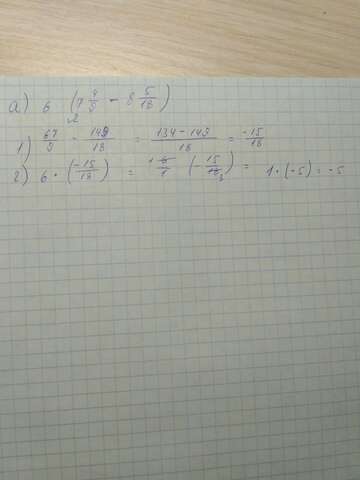 а) 6 (7 4/9 - 8 5/18)
2
1) 67/9 - 149/18 = 134-149/18 = -15/18
2) 6 · (-15/18) = 1 6/1 (-15/18 3) = 1·(-5) = -5